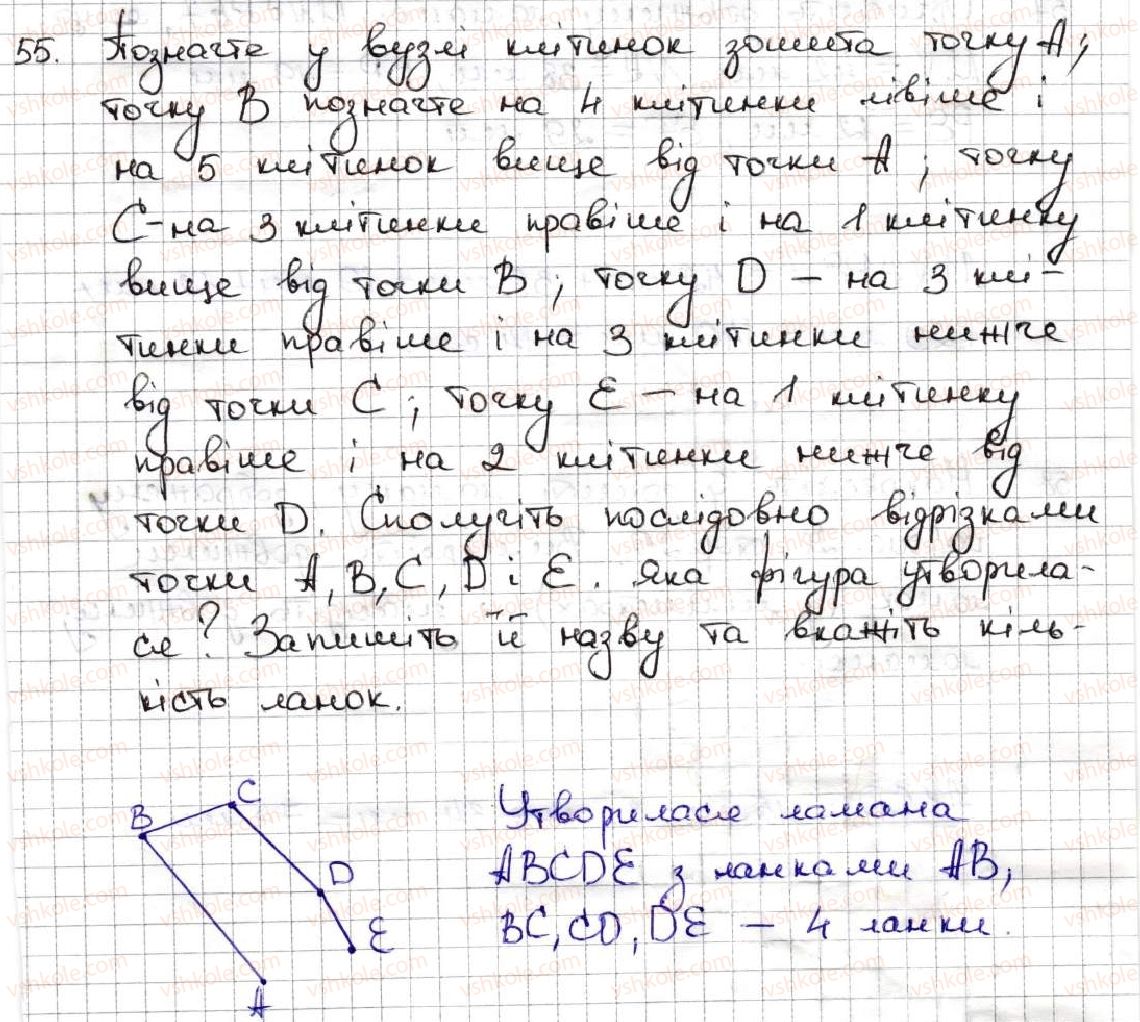 55. Позначте у вузлі клітинок зошита точку A;
точку B позначте на 4 клітинки лівіше і
на 5 клітинок вище від точки A; точку
C – на 3 клітинки правіше і на 1 клітинку
вище від точки B; точку D – на 3 клі-
тинки правіше і на 3 клітинки нижче
від точки C; точку E – на 1 клітинку
правіше і на 2 клітинки нижче від
точки D. Сполучіть послідовно відрізками
точки A, B, C, D і E. Яка фігура утворила-
ся? Запишіть її назву та вкажіть кіль-
кість ланок.
C
B
D
E
A
Утворилася ламана
ABCDE з ланками AB,
BC, CD, DE – 4 ланки.
vshkole.com